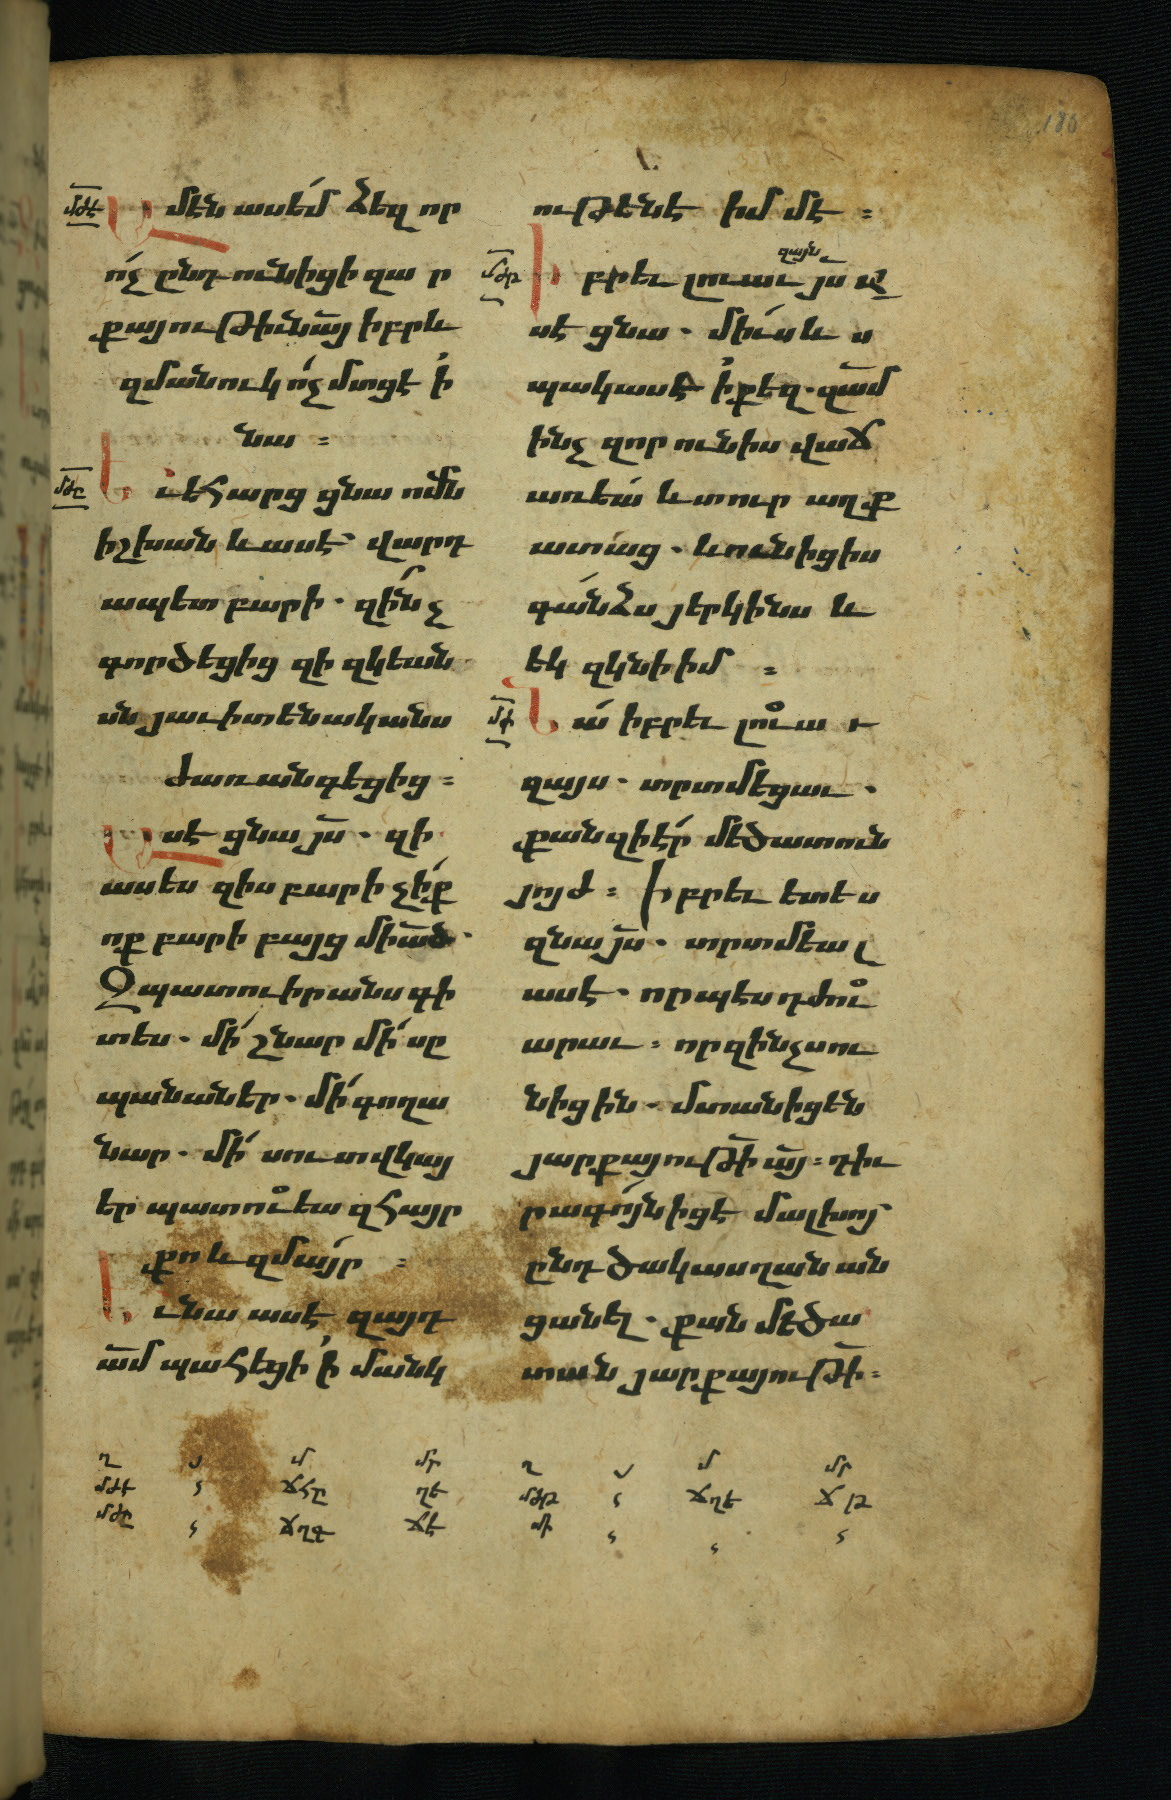 186
մժէ Ամէն ասեմ ձեզ որ
ոչ ընդունիցի զար
քայութիւն այ իբրև
զմանուկ ոչ մտցէ ի
նա ։
մժը Եւ եհարց ցնա ոմն
իշխան և ասէ՝ վարդ
ապետ բարի ․ զինչ
գործեցից զի զկեան
սն յաւիտենականս
ժառանգեցից ։
Ասէ ցնա յս ․ զի
ասես զիս բարի չիք
ոք բարի բայց մի ած ․
Զպատուիրանս գի
տես ․ մի շնար մի սը
պանաներ ․ մի գողա
նար ․ մի սուտ վկայ
եր պատուեա զհայր
քո և զմայր ։
Եւ նա ասէ զայդ
ամ պահեցի ի մանկ
ութենէ իմմէ ։
մժթ Իբրեւ լուաւ զայն յս ա
սէ ցնա ․ միւս ևս
պակասէ ի քեզ ․ զամ
ինչ զոր ունիս վաճ
առեա և տուր աղք
ատաց ․ և ունիցիս
գանձս յերկինս և
եկ զկնի իմ ։
մի Նա իբրեւ լուաւ
զայս ․ տրտմեցաւ ․
քանզի էր մեծատուն
յոյժ ։ Իբրեւ ետես
զնա յս ․ տրտմեալ
ասէ ․ որպէս դժու
արաւ ․ որ զինչս ու
նիցին ․ մտանիցեն
յարքայութի այ ։ դիւ
րագոյն իցէ մալխոյ
ընդ ծակ ասղան ան
ցանել ․ քան մեծա
տան յարքայութի ։
ղ մ մր ղ մ մր
մժէ ճհը ղե մժթ ճղե ճթ
մժը ճղգ ճէ մի